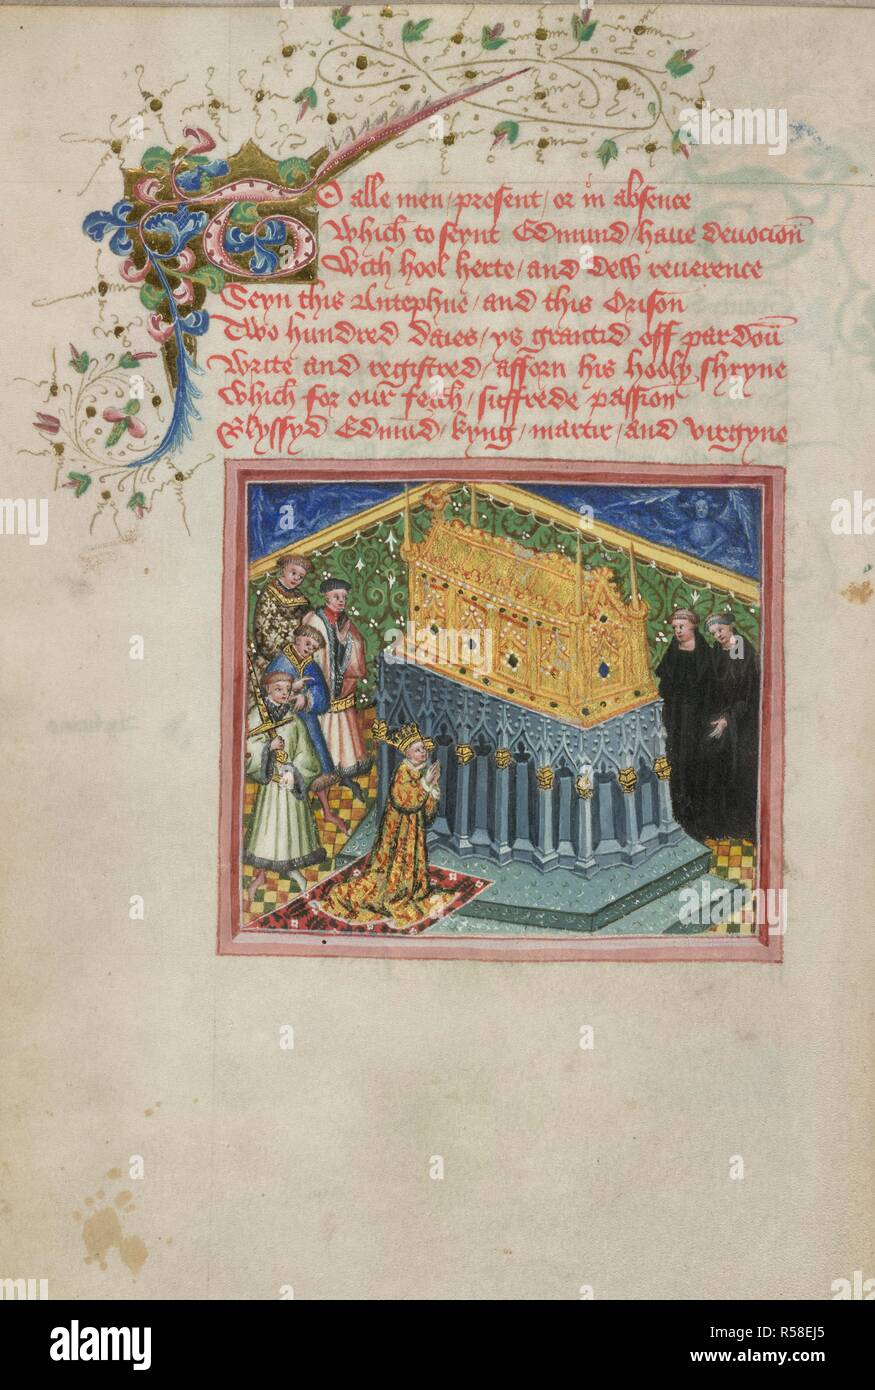 To alle men / present / or in absence
Which to seynt Edmund / haue devocioun̄
With hool herte / and dew reuerence
Seyn this Antephne / and this Orison̄
Two hundred daies / ys grantid off pardoun̄
Write and registred / afforn his hooly shryne
Which for our feith / suffrede passion̄
Blyssyd Edmu̅d / kyng / martir / and virgyne
a
alamy
alamy
Image ID: R58EJ5
www.alamy.com